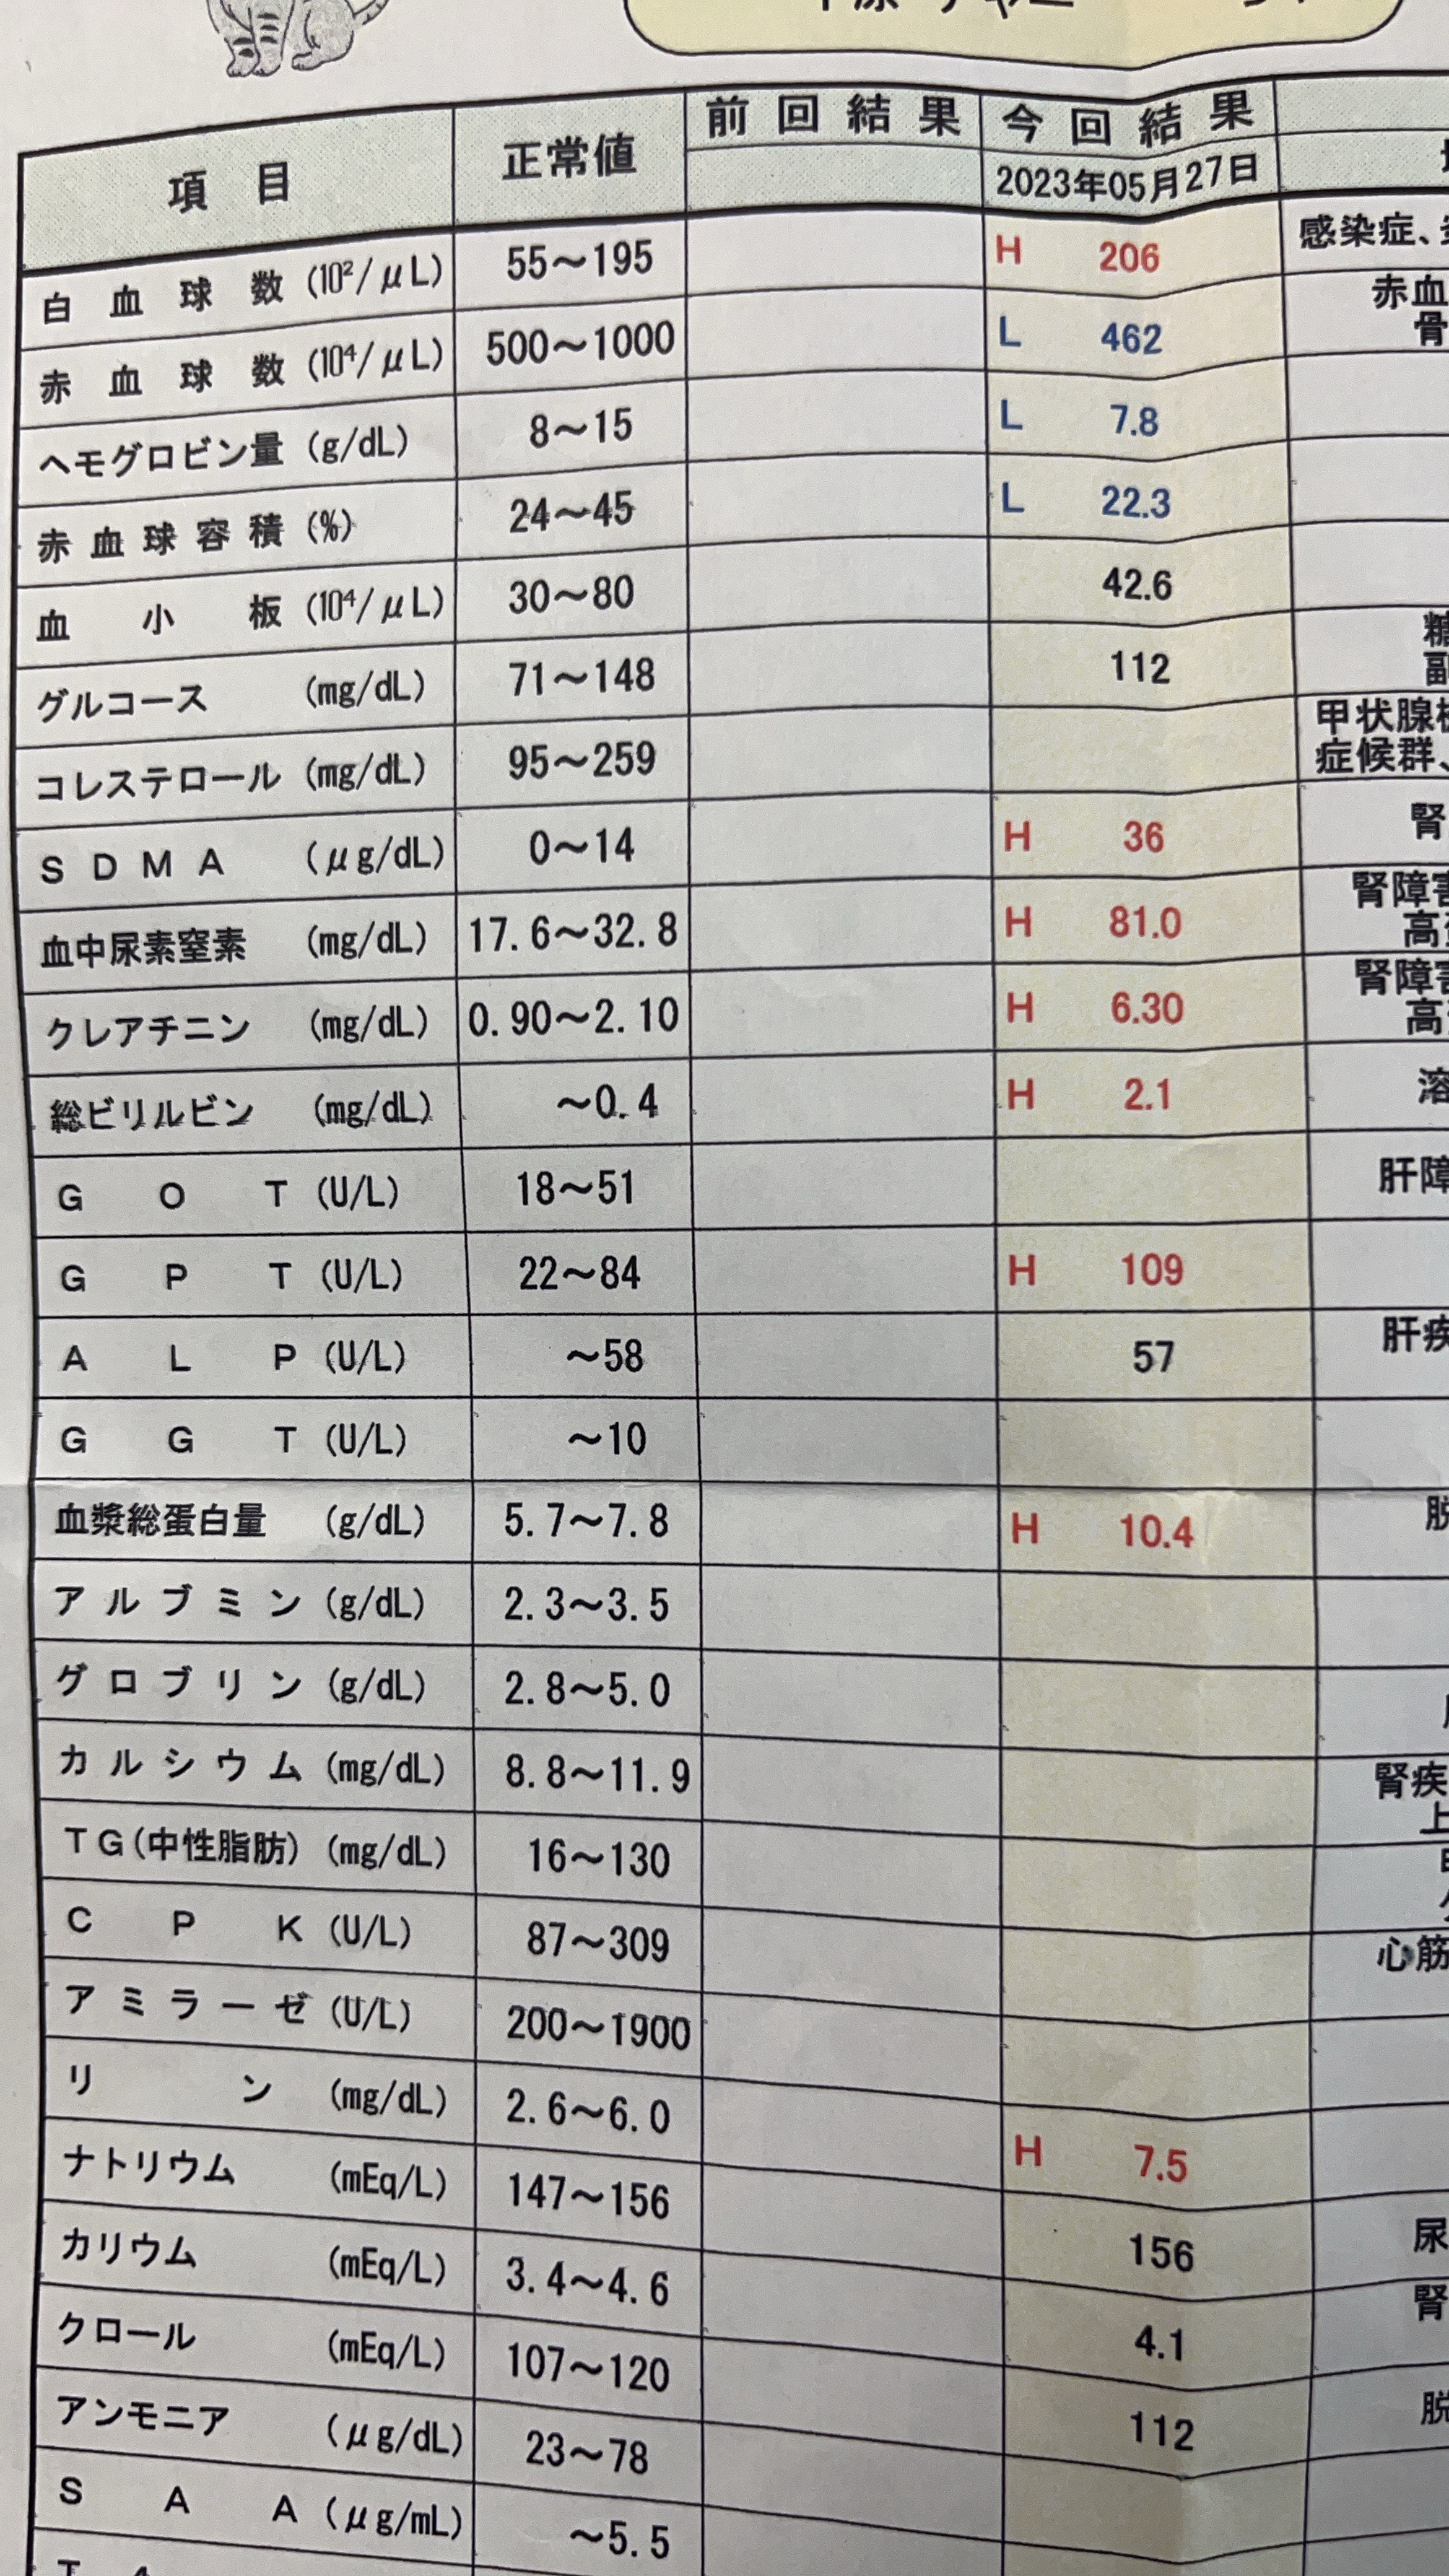 項目 正常値 前回結果 今回結果
2023年05月27日
白血球数 (10²/μL) 55〜195 H 206 感染症、
赤血球数 (10⁴/μL) 500〜1000 L 462 赤血
骨
ヘモグロビン量 (g/dL) 8〜15 L 7.8
赤血球容積 (%) 24〜45 L 22.3
血小板 (10⁴/μL) 30〜80 42.6
グルコース (mg/dL) 71〜148 112 糖
副
コレステロール (mg/dL) 95〜259 甲状腺機
症候群、
SDMA (μg/dL) 0〜14 H 36 腎
血中尿素窒素 (mg/dL) 17.6〜32.8 H 81.0 腎障害
高
クレアチニン (mg/dL) 0.90〜2.10 H 6.30 腎障害
高
総ビリルビン (mg/dL) 〜0.4 H 2.1 溶
GOT (U/L) 18〜51 肝障
GPT (U/L) 22〜84 H 109
ALP (U/L) 〜58 57 肝疾
GGT (U/L) 〜10
血漿総蛋白量 (g/dL) 5.7〜7.8 H 10.4 脱
アルブミン (g/dL) 2.3〜3.5
グロブリン (g/dL) 2.8〜5.0
カルシウム (mg/dL) 8.8〜11.9 腎疾
上
TG(中性脂肪) (mg/dL) 16〜130
CPK (U/L) 87〜309 心筋
アミラーゼ (U/L) 200〜1900
リン (mg/dL) 2.6〜6.0 H 7.5
ナトリウム (mEq/L) 147〜156 156 尿
カリウム (mEq/L) 3.4〜4.6 4.1 腎
クロール (mEq/L) 107〜120 112 脱
アンモニア (μg/dL) 23〜78
SAA (μg/mL) 〜5.5